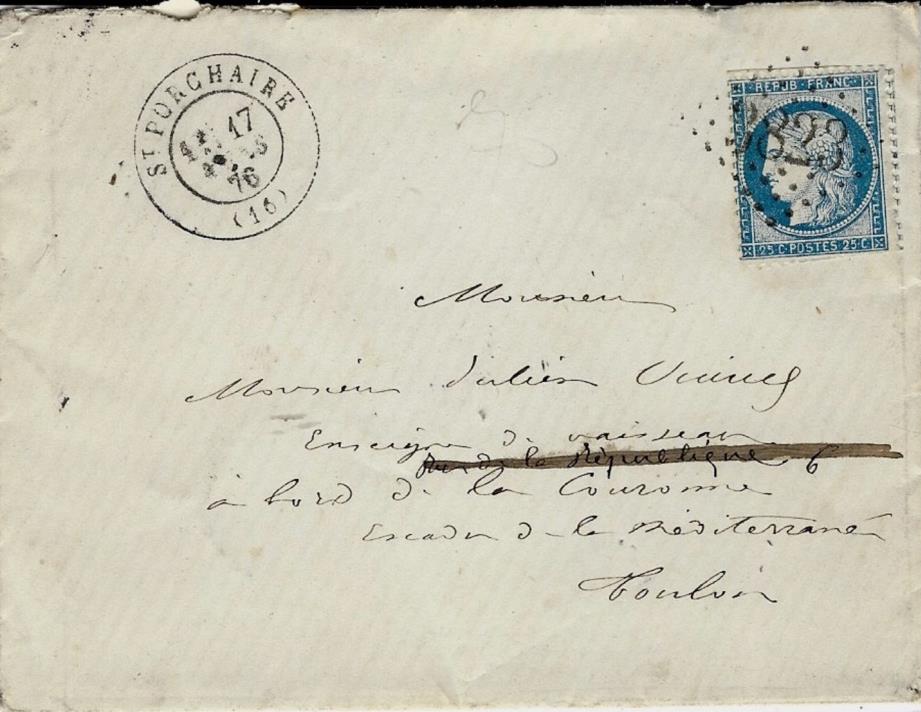 ST PORCHAIRE
17
76
(16)
REPUB·FRANC·
25 C·POSTES 25·C
Monsieur
Monsieur Julien
Enseigne de vaisseau
Rue de la République 6
à bord de la Couronne
Escadre de la Méditerranée
Toulon